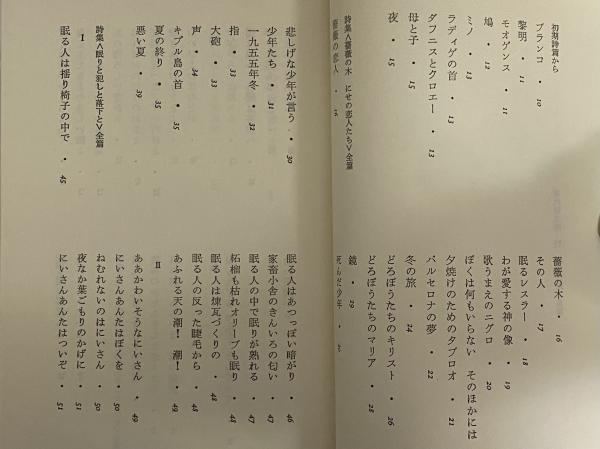 初期詩篇から
ブランコ • 10
黎明 • 11
モオゲンス • 11
鳩 • 12
ミノ • 13
ラディゲの首 • 13
ダフニスとクロエー • 13
母と子 • 15
夜 • 15
詩集＜薔薇の木 にせの恋人たち＞全篇
薔薇の恋人 •
薔薇の木 • 16
その人 • 17
眠るレスラー • 18
わが愛する神の像 • 19
歌うまえのニグロ • 20
ぼくは何もいらない そのほかには
夕焼けのためのタブロオ • 21
バルセロナの夢 • 22
冬の旅 • 24
どろぼうたちのキリスト • 26
どろぼうたちのマリア • 28
鏡 • 29
死んだ少年 •
悲しげな少年が言う • 30
少年たち • 31
一九五五年冬 • 32
指 • 33
大砲 • 33
声 • 34
キプル島の首 • 35
夏の終り • 35
悪い夏 • 39
詩集＜眠りと犯しと落下と＞全篇
I
眠る人は揺り椅子の中で • 45
眠る人はあつっぽい暗がり • 46
家畜小舎のきんいろの匂い • 47
眠る人の中で眠りが熟れる • 47
柘榴も枯れオリーブも眠り • 48
眠る人は煉瓦づくりの • 48
眠る人の反った睫毛から • 48
あふれる天の潮！ 潮！ • 49
II
ああかわいそうなにいさん • 49
にいさんあんたはぼくを • 50
ねむれないのはにいさん • 50
夜なか葉ごもりのかげに • 51
にいさんあんたはついぞ • 51